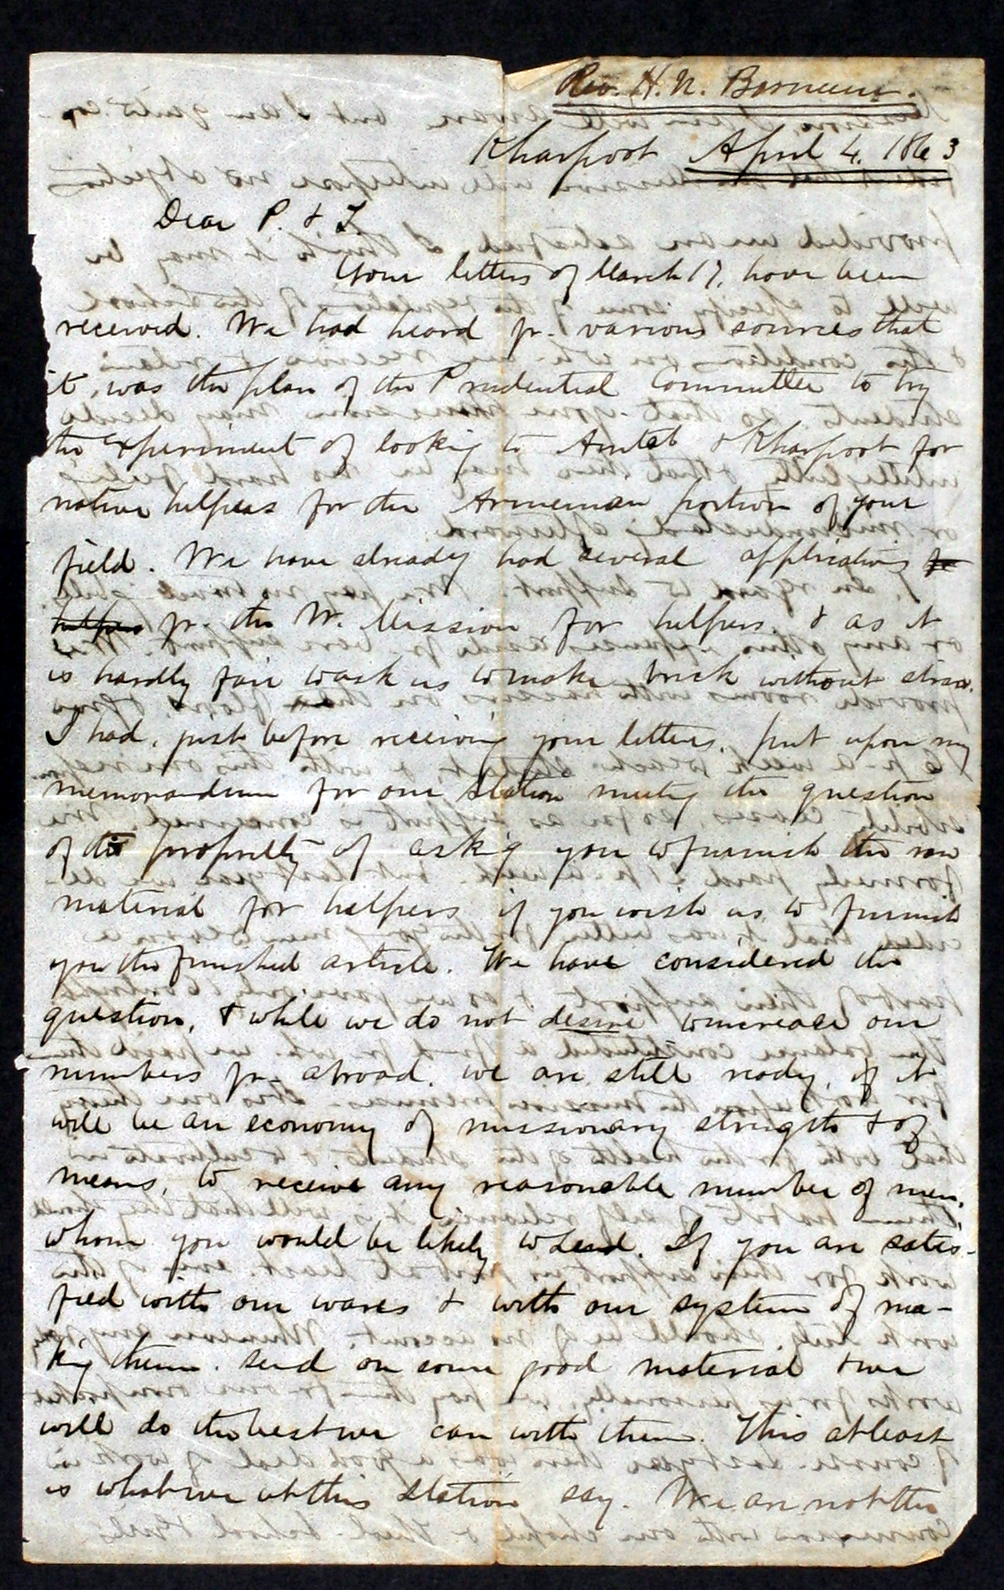 Rev. H. N. Barnum.
Kharpoot April 4. 1863
Dear P. & T.
Your letters of March 17. have been
received. We had heard fr. various sources that
it was the plan of the Prudential Committee to try
the experiment of looking to Aintab & Kharpoot for
native helpers for the Armenian portion of your
field. We have already had several applications for
helpers fr. the W. Mission for helpers, & as it
is hardly fair to ask us to make brick without straw.
I had, just before receiving your letters, put upon my
memorandum for our Station meeting the question
of the propriety of asking you to furnish the raw
material for helpers if you wish us to furnish
you the finished article. We have considered the
question, & while we do not desire to increase our
numbers fr. abroad, we are still ready, if it
will be an economy of missionary strength & of
means, to receive any reasonable number of men,
whom you would be likely to send. If you are satis-
fied with our wares & with our system of ma-
king them, send on some good material & we
will do the best we can with them. This at least
is what we at this station say. We are not the